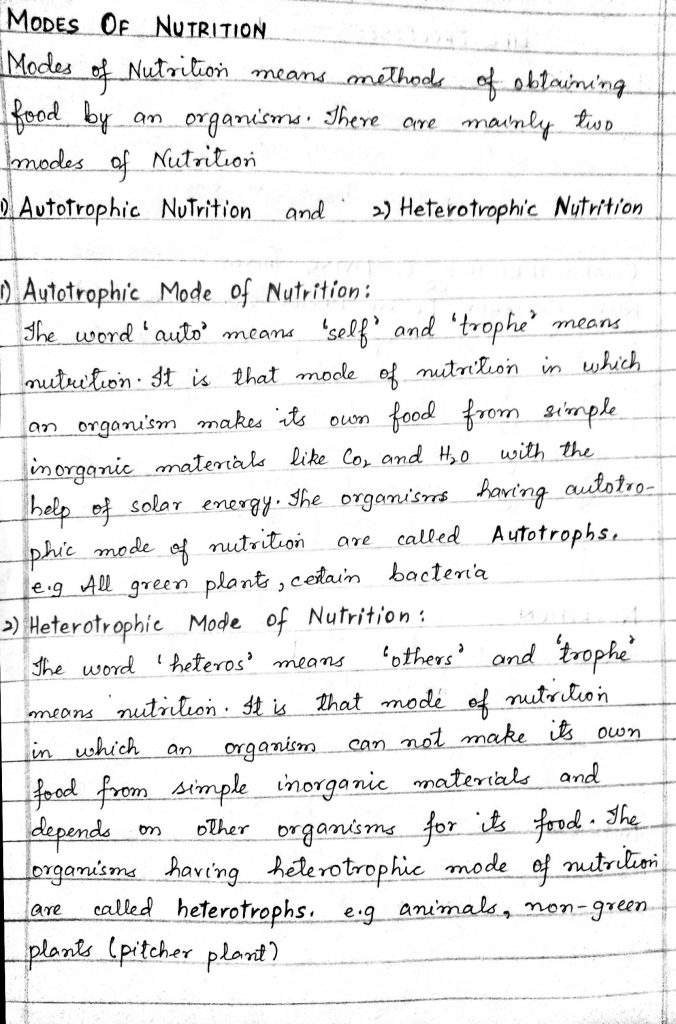 MODES OF NUTRITION
Modes of Nutrition means methods of obtaining
food by an organisms. There are mainly two
modes of Nutrition
1) Autotrophic Nutrition and 2) Heterotrophic Nutrition
1) Autotrophic Mode of Nutrition:
The word 'auto' means 'self' and 'trophe' means
nutrition. It is that mode of nutrition in which
an organism makes its own food from simple
inorganic materials like CO2 and H2O with the
help of solar energy. The organisms having autotro-
phic mode of nutrition are called Autotrophs.
e.g All green plants, certain bacteria
2) Heterotrophic Mode of Nutrition:
The word 'heteros' means 'others' and 'trophe'
means nutrition. It is that mode of nutrition
in which an organism can not make its own
food from simple inorganic materials and
depends on other organisms for its food. The
organisms having heterotrophic mode of nutrition
are called heterotrophs. e.g animals, non-green
plants (pitcher plant)